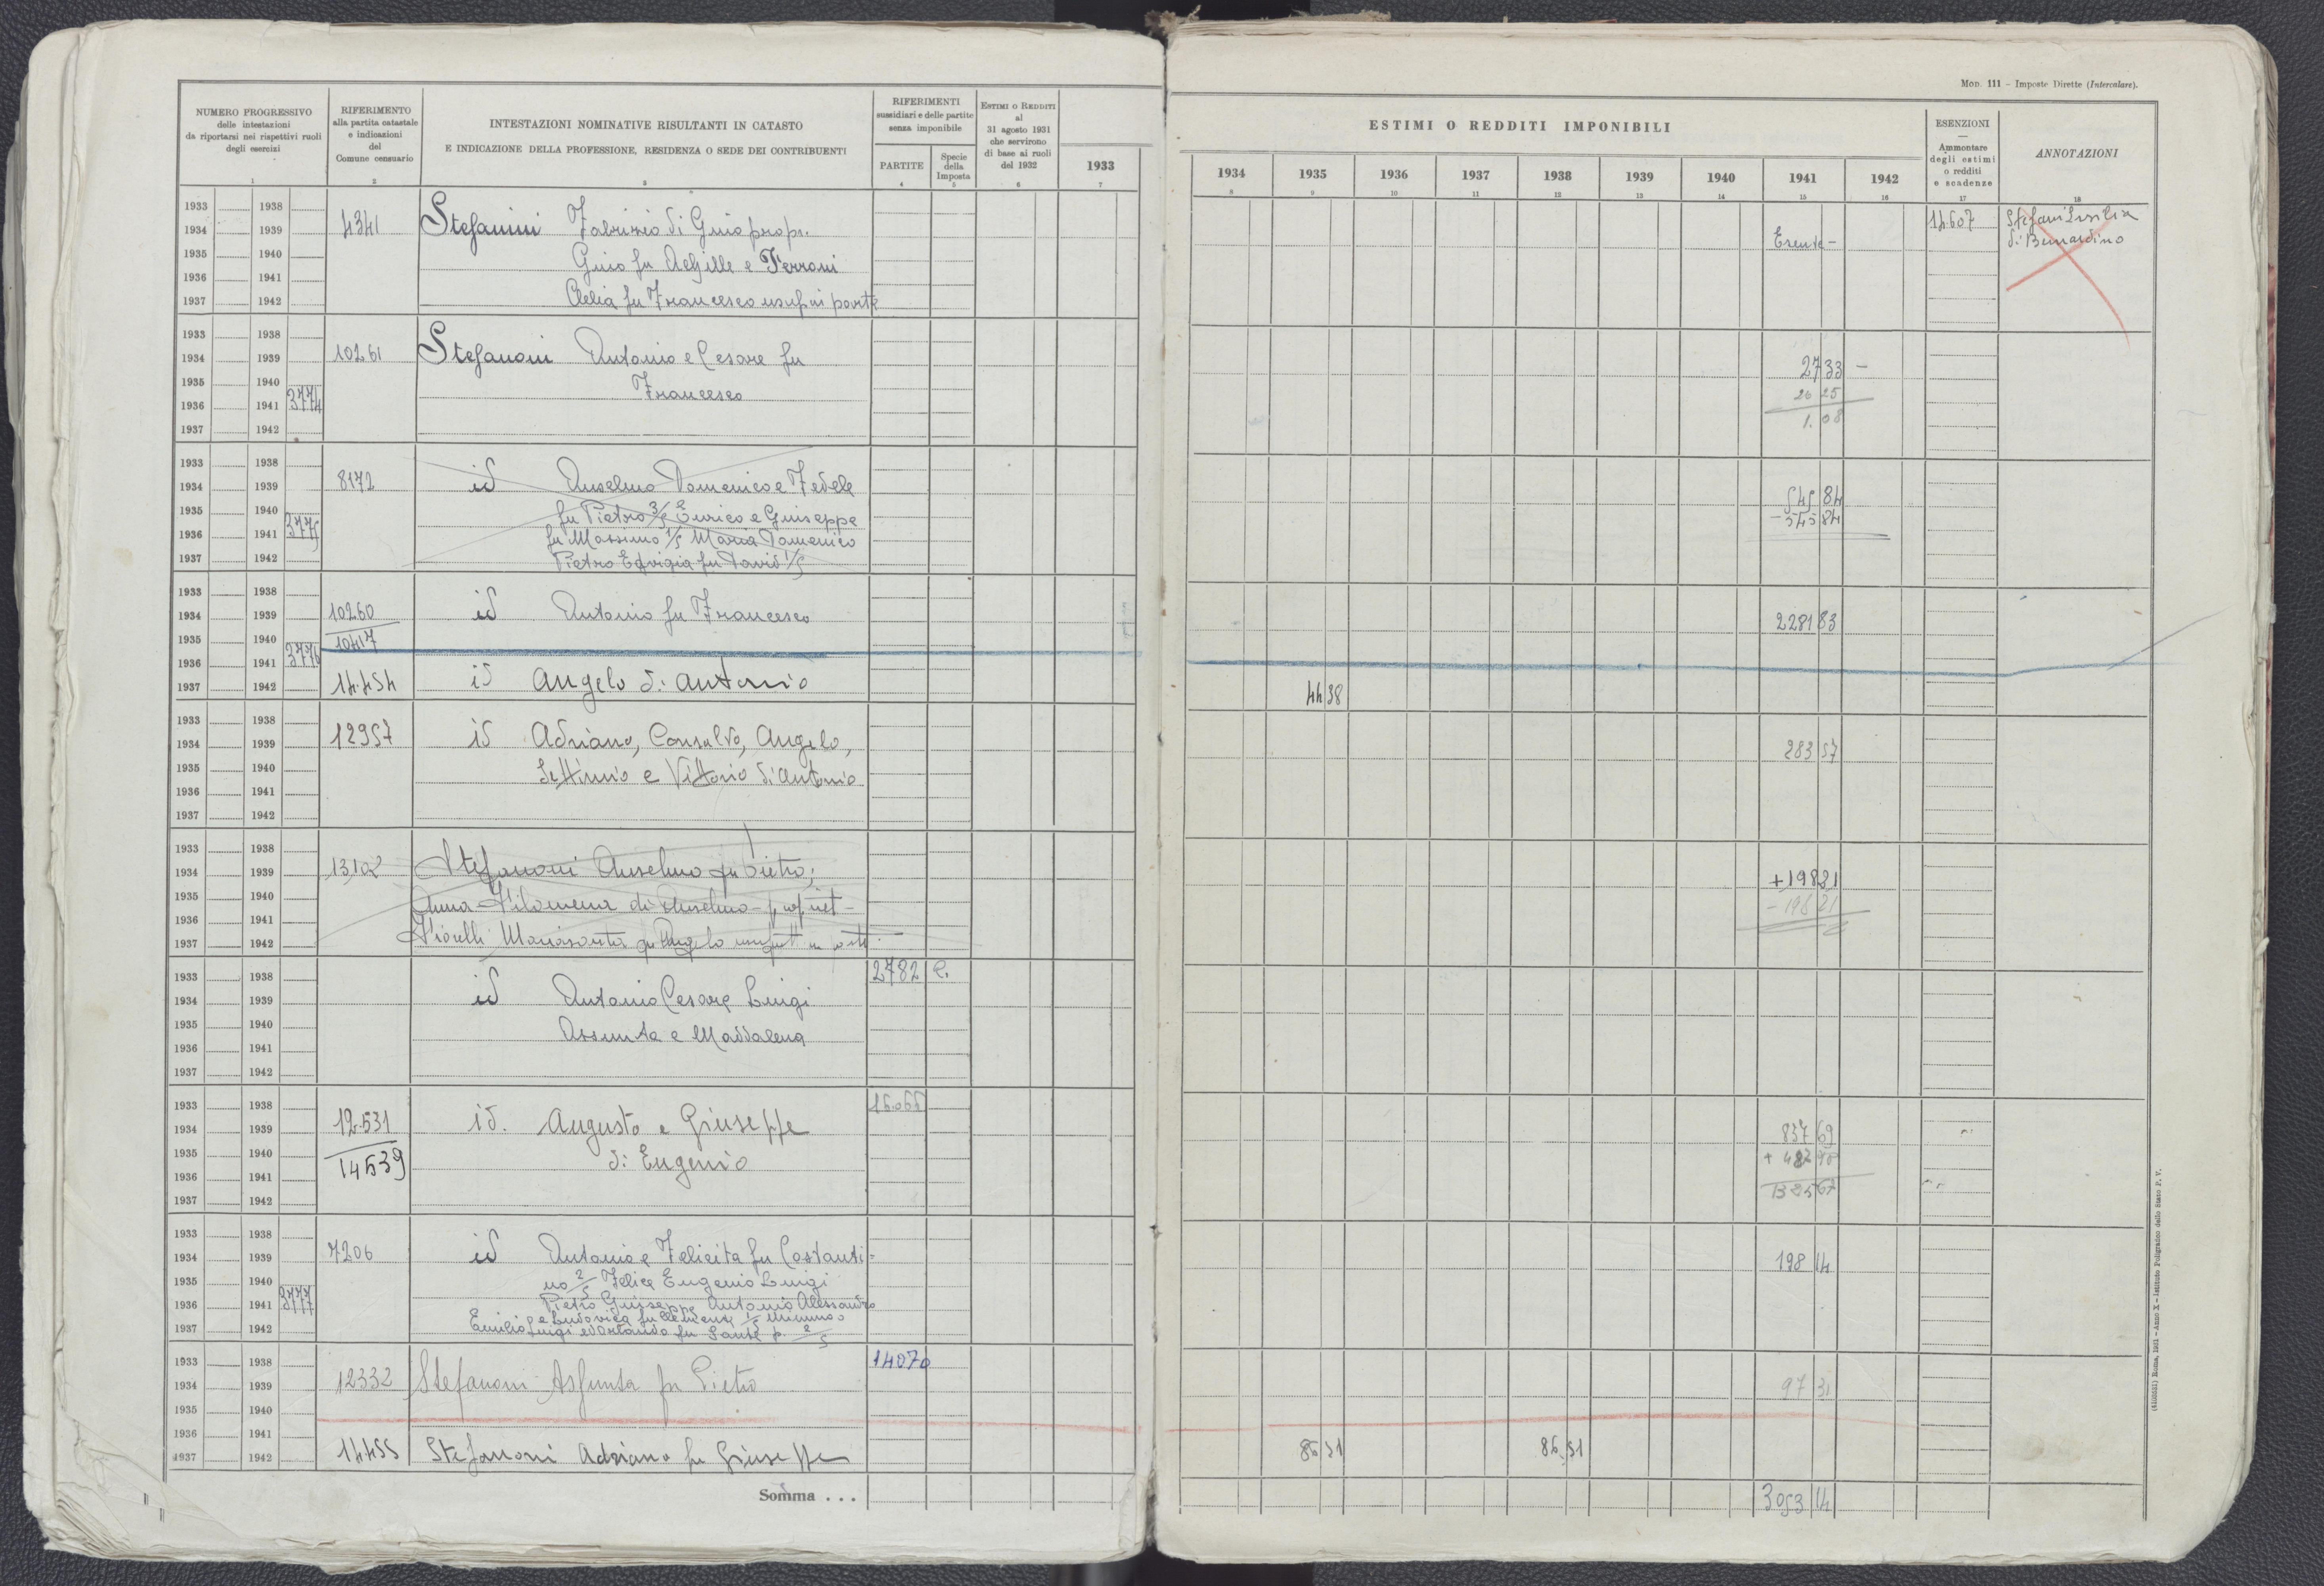 Mod. 111 – Imposte Dirette (Intercalare).
NUMERO PROGRESSIVO
delle intestazioni
da riportarsi nei rispettivi ruoli
degli esercizi
1
RIFERIMENTO
alla partita catastale
e indicazioni
del
Comune censuario
2
INTESTAZIONI NOMINATIVE RISULTANTI IN CATASTO
E INDICAZIONE DELLA PROFESSIONE, RESIDENZA O SEDE DEI CONTRIBUENTI
3
RIFERIMENTI
sussidiari e delle partite
senza imponibile
PARTITE
4
Specie
della
Imposta
5
Estimi o Redditi
al
31 agosto 1931
che servirono
di base ai ruoli
del 1932
6
1933
7
ESTIMI O REDDITI IMPONIBILI
1934 1935 1936 1937 1938 1939 1940 1941 1942
8 9 10 11 12 13 14 15 16
ESENZIONI
—
Ammontare
degli estimi
o redditi
e scadenze
17
ANNOTAZIONI
18
1933 1938
1934 1939
1935 1940
1936 1941
1937 1942
4341
Stefanini Fabrizio di Guio propr.
Guio fu Achille e Ferroni
Clelia fu Francesco usuf in parte
Esente -
14607
Stefani
di Bernardino
1933 1938
1934 1939
1935 1940
1936 1941 3774
1937 1942
10261
Stefanoni Antonio e Cesare fu
Francesco
27 33 -
26 25
1. 08
1933 1938
1934 1939
1935 1940
1936 1941 3775
1937 1942
8172
id Anselmo Domenico e Fedele
fu Pietro 3/5 Enrico e Giuseppe
fu Massimo 1/5 Maria Domenico
Pietro Edvigia fu David 1/5
545 84
- 545 84
1933 1938
1934 1939
1935 1940
1936 1941 3776
1937 1942
10260
10417
id Antonio fu Francesco
2281 83
14.454
id Angelo di Antonio
44 38
1933 1938
1934 1939
1935 1940
1936 1941
1937 1942
12957
id Adriano, Consalvo, Angelo,
Settimio e Vittorio di Antonio
283 57
1933 1938
1934 1939
1935 1940
1936 1941
1937 1942
13102
Stefanoni Anselmo fu Pietro;
Anna Filomena di Anselmo - propriet -
Mariasanta fu Angelo usufrutt in parte
+ 198 21
- 198 21
1933 1938
1934 1939
1935 1940
1936 1941
1937 1942
id Antonio Cesare Luigi
Assunta e Maddalena
2782 C.
1933 1938
1934 1939
1935 1940
1936 1941
1937 1942
12.531
14539
id. Augusto e Giuseppe
di Eugenio
837 69
+ 487 98
1325 67
1933 1938
1934 1939
1935 1940
1936 1941 3777
1937 1942
7206
id Antonio e Felicita fu Costanti=
no 2/5 Felice Eugenio Luigi
Pietro Giuseppe Antonio Alessandro
e Ludovica fu Clemente 1/5
Emilio Luigi ed Orlando fu Sante p. 2/5
198 14
1933 1938
1934 1939
1935 1940
1936 1941
1937 1942
12332
Stefanoni Assunta fu Pietro
14070
97 31
14455
Stefanoni Adriano fu Giuseppe
86 51
86 51
Somma . . .
3053 14